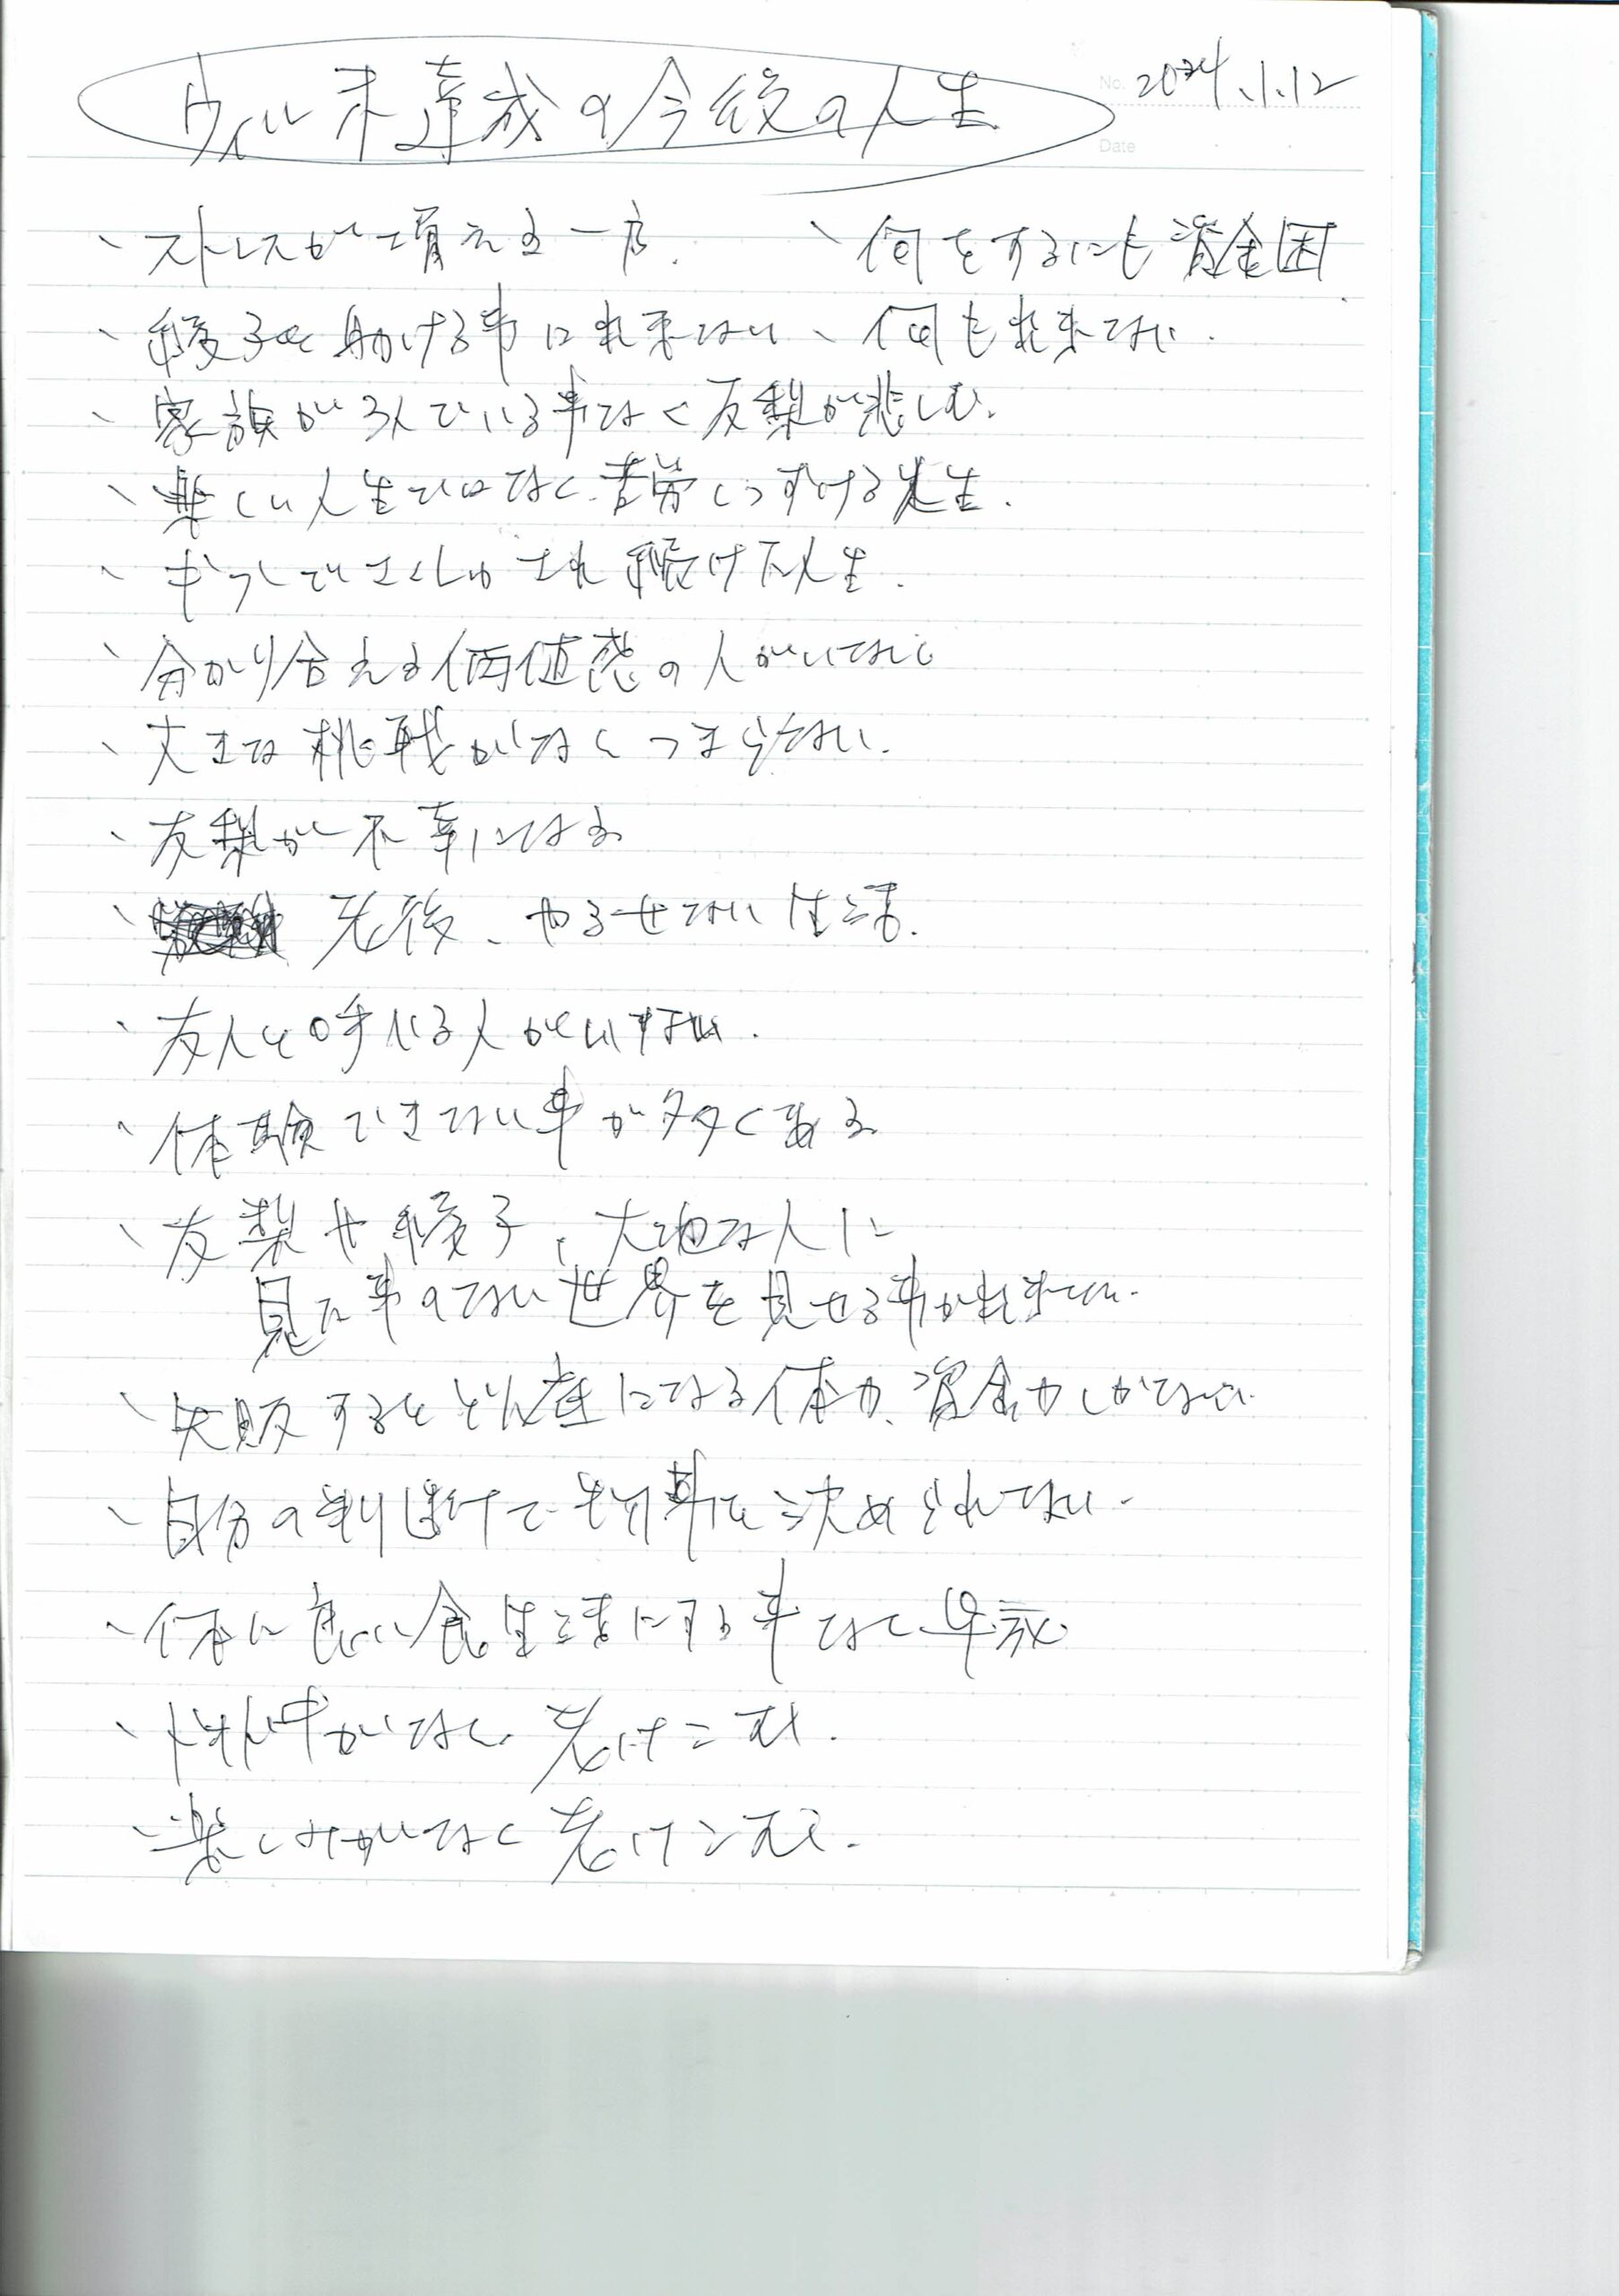 ウィル未達成の今後の人生
No. 2024.1.12
Date
、ストレスが増える一方.
、何をするにも資金困
、優子を助ける事は出来ない、何も出来ない.
、家族が3人でいる事なく友梨が悲しむ.
、楽しい人生ではなく、苦労しつずける人生.
、され続けた人生.
、分かり合える価値感の人がいない
、大きな挑戦がなくつまらない.
、友梨が不幸になる
、老後、やるせない生活.
、友人と呼べる人がいない.
、体験できない事が多くある
、友梨や優子、大切な人に
見た事のない世界を見せる事が出来ない.
、失敗すると になる体力、資金力しかない
、自分の判断で物事を決められない.
、体に良い食生活にする事なく早死
、がなく、老けこむ.
、楽しみがなく老けこむ.